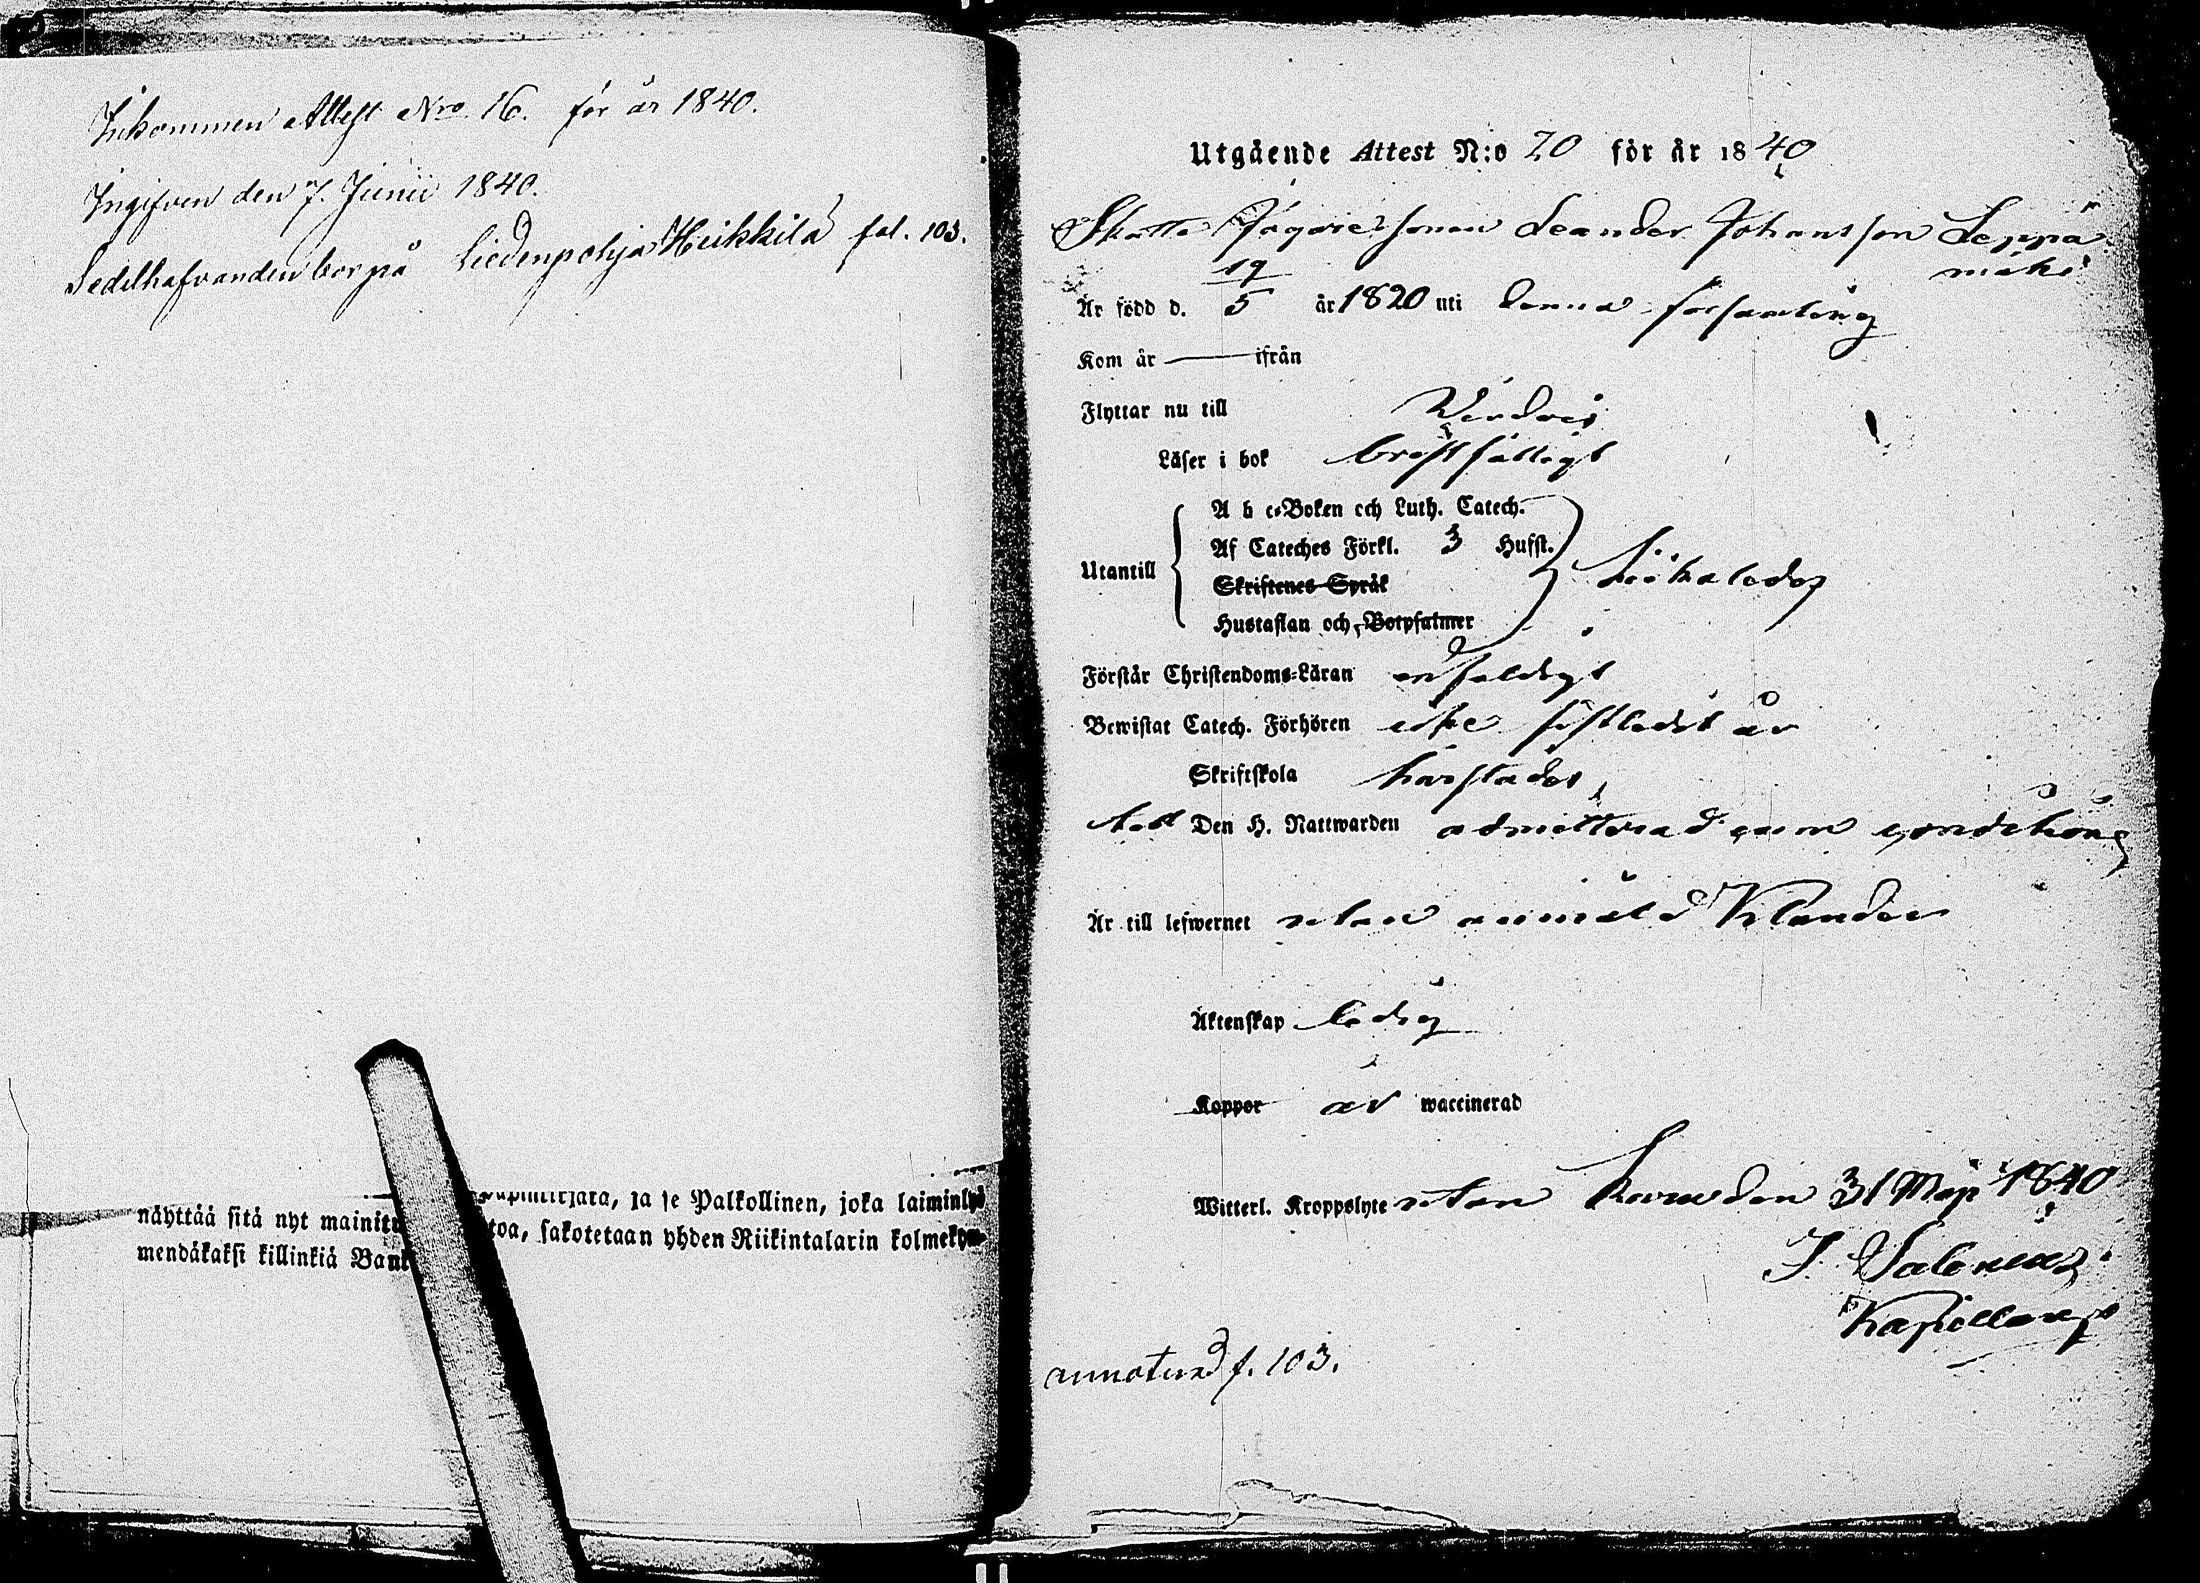 Inkommen Attest Nro. 16. för år 1840.
Ingifven den 7. Junii 1840.
Sedelhafvanden bor på Liedenpohja Heikkilä fol. 103.
näyttää sitä nyt
joka laiminlyö
toa, sakotetaan yhden Riikintalarin kolmeky-
mendäkaksi killinkiä
Utgående Attest N:o 20 för år 1840
Skatte Leander Johansson Leppä
mäki
Är född d. 19/5 år 1820 uti denna församling
Kom år — ifrån
Flyttar nu till Virdois
Läser i bok bristfälligt
Utantill
A b c-Boken och Luth. Catech.
Af Cateches Förkl. 3 Hufst.
Skriftenes Språk
Hustaflan och Botpsalmer
likaledes
Förstår Christendoms-Läran enfaldigt
Bewistat Catech. Förhören icke sistledit år
Skriftskola
Den H. Nattwarden admitterad conditione
Är till lefwernet utan anmäld klander
Äktenskap ledig
Koppor är waccinerad
Witterl. Kroppslyte utan den 31 Maji 1840
J. Salenius
Kapellan
annoterad f. 103.